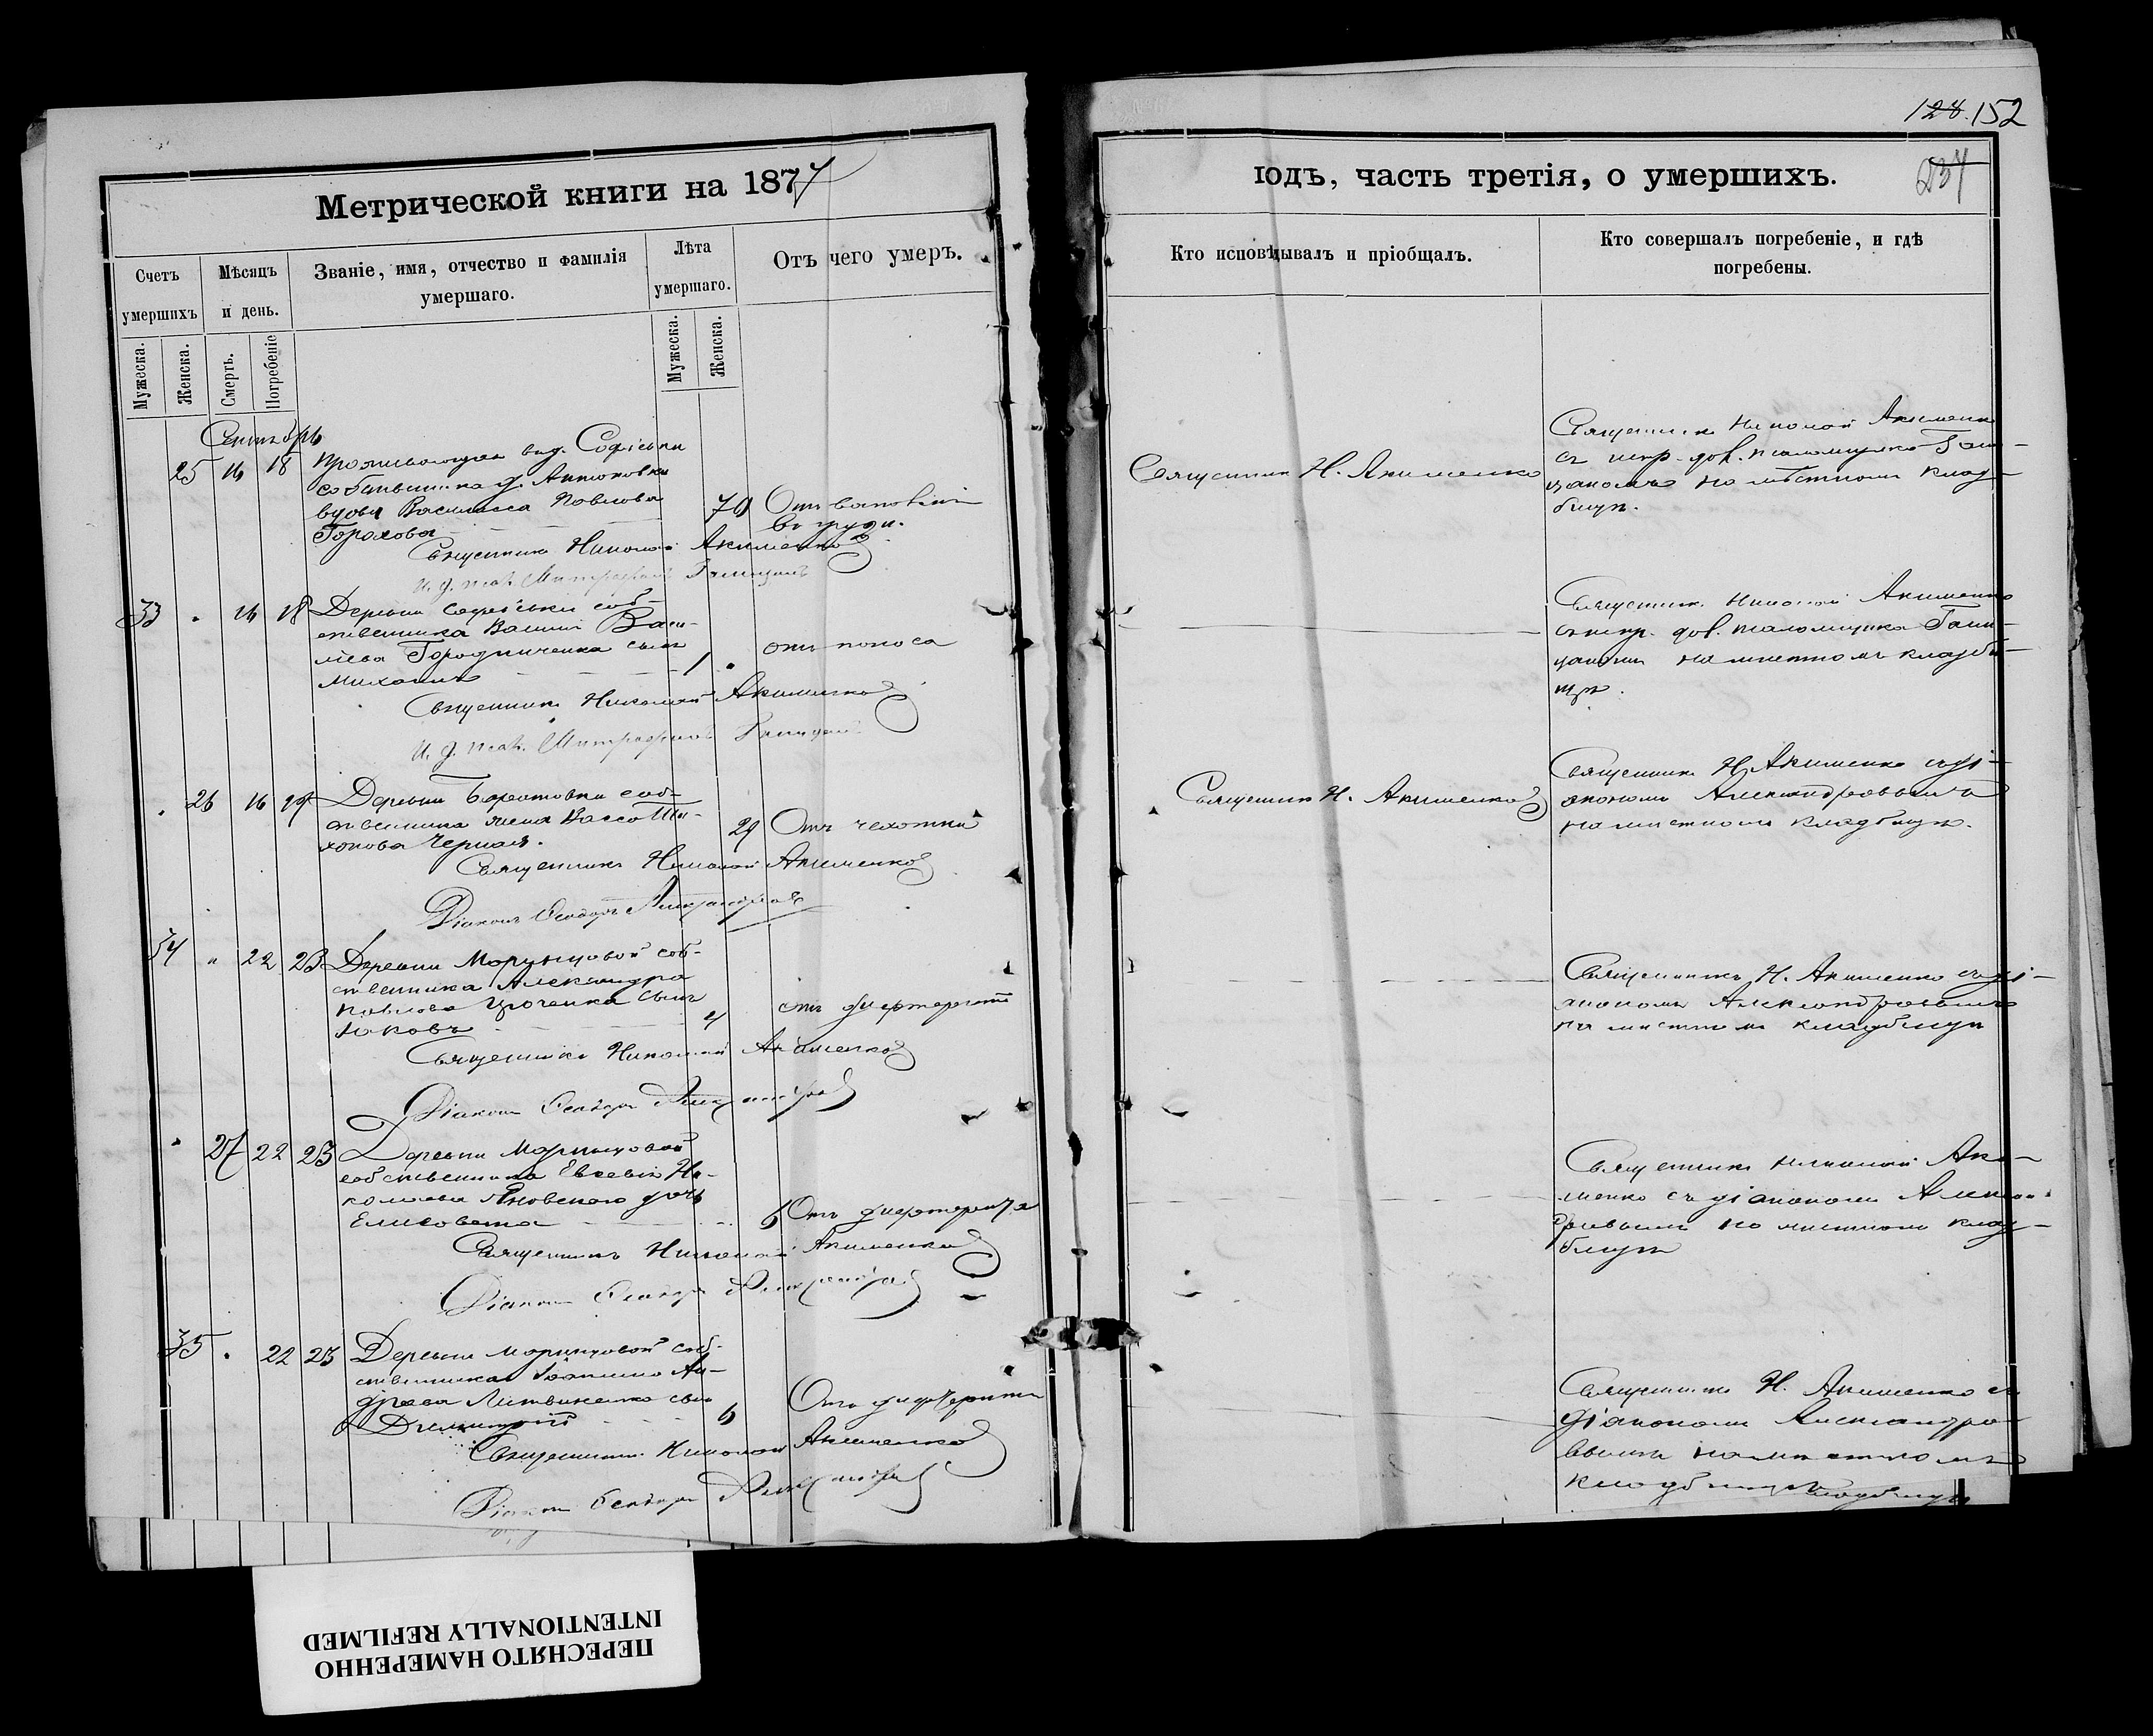 128. 152
237
Метрической книги на 1877
годъ, часть третія, о умершихъ.
Счетъ умершихъ
Мѣсяцъ и день.
Званіе, имя, отчество и фамилія умершаго.
Лѣта умершаго.
Отъ чего умеръ.
Кто исповѣдывалъ и пріобщалъ.
Кто совершалъ погребеніе, и гдѣ погребены.
Мужеска.
Женска.
Смерть.
Погребеніе
Мужеска.
Женска.
Сентябрь
25 16 18 Проживающая въ д. Софіевки
собственника д. Антоновки
вдова Василиса Павлова
Горохова 70
въ груди.
Священникъ Николай Акименко
И. д. псал. Митрофанъ
Священникъ Н. Акименко
Священникъ Николай Акименко
на мѣстномъ клад-
бищѣ.
33 " 16 18 Деревни Софіевки соб-
ственника Васи-
лiева Городниченка сынъ
Михаилъ 1 " отъ поноса
Священникъ Николай Акименко
И. д. псал. Митрофанъ
Священникъ Николай Акименко
на мѣстномъ кладби-
щѣ.
" 26 16 Деревни соб-
ственника жена Васса Ти-
хонова Черная. 29 Отъ чахотки
Священникъ Николай Акименко
Діаконъ Ѳеодоръ Александровъ
Священникъ Н. Акименко
Священникъ Н. Акименко съ ді-
акономъ Александровымъ
на мѣстномъ кладбищѣ.
34 " 22 23 Деревни соб-
ственника Александра
Павлова сынъ
Яковъ 4 отъ дифтерита
Священникъ Николай Акименко
Діаконъ Ѳеодоръ Александровъ
Священникъ Н. Акименко съ ді-
акономъ Александровымъ
на мѣстномъ кладбищѣ
" 27 22 23 Деревни
собственника Евсевія Ни-
колаева Яновскаго дочь
Елисавета 6 Отъ дифтерита
Священникъ Николай Акименко
Діаконъ Ѳеодоръ Александровъ
Священникъ Николай Аки-
менко съ діакономъ Алексан-
дровымъ на мѣстномъ клад-
бищѣ
35 " 22 23 Деревни соб-
ственника Іоанна Ан-
дреева Литвиненко сынъ
Димитрій 6 Отъ дифтерита
Священникъ Николай Акименко
Діаконъ Ѳеодоръ Александровъ
Священникъ Н. Акименко съ
діакономъ Александро-
вымъ на мѣстномъ
кладбищѣ
кладбищѣ
ПЕРЕСНЯТО НАМЕРЕННО
INTENTIONALLY REFILMED